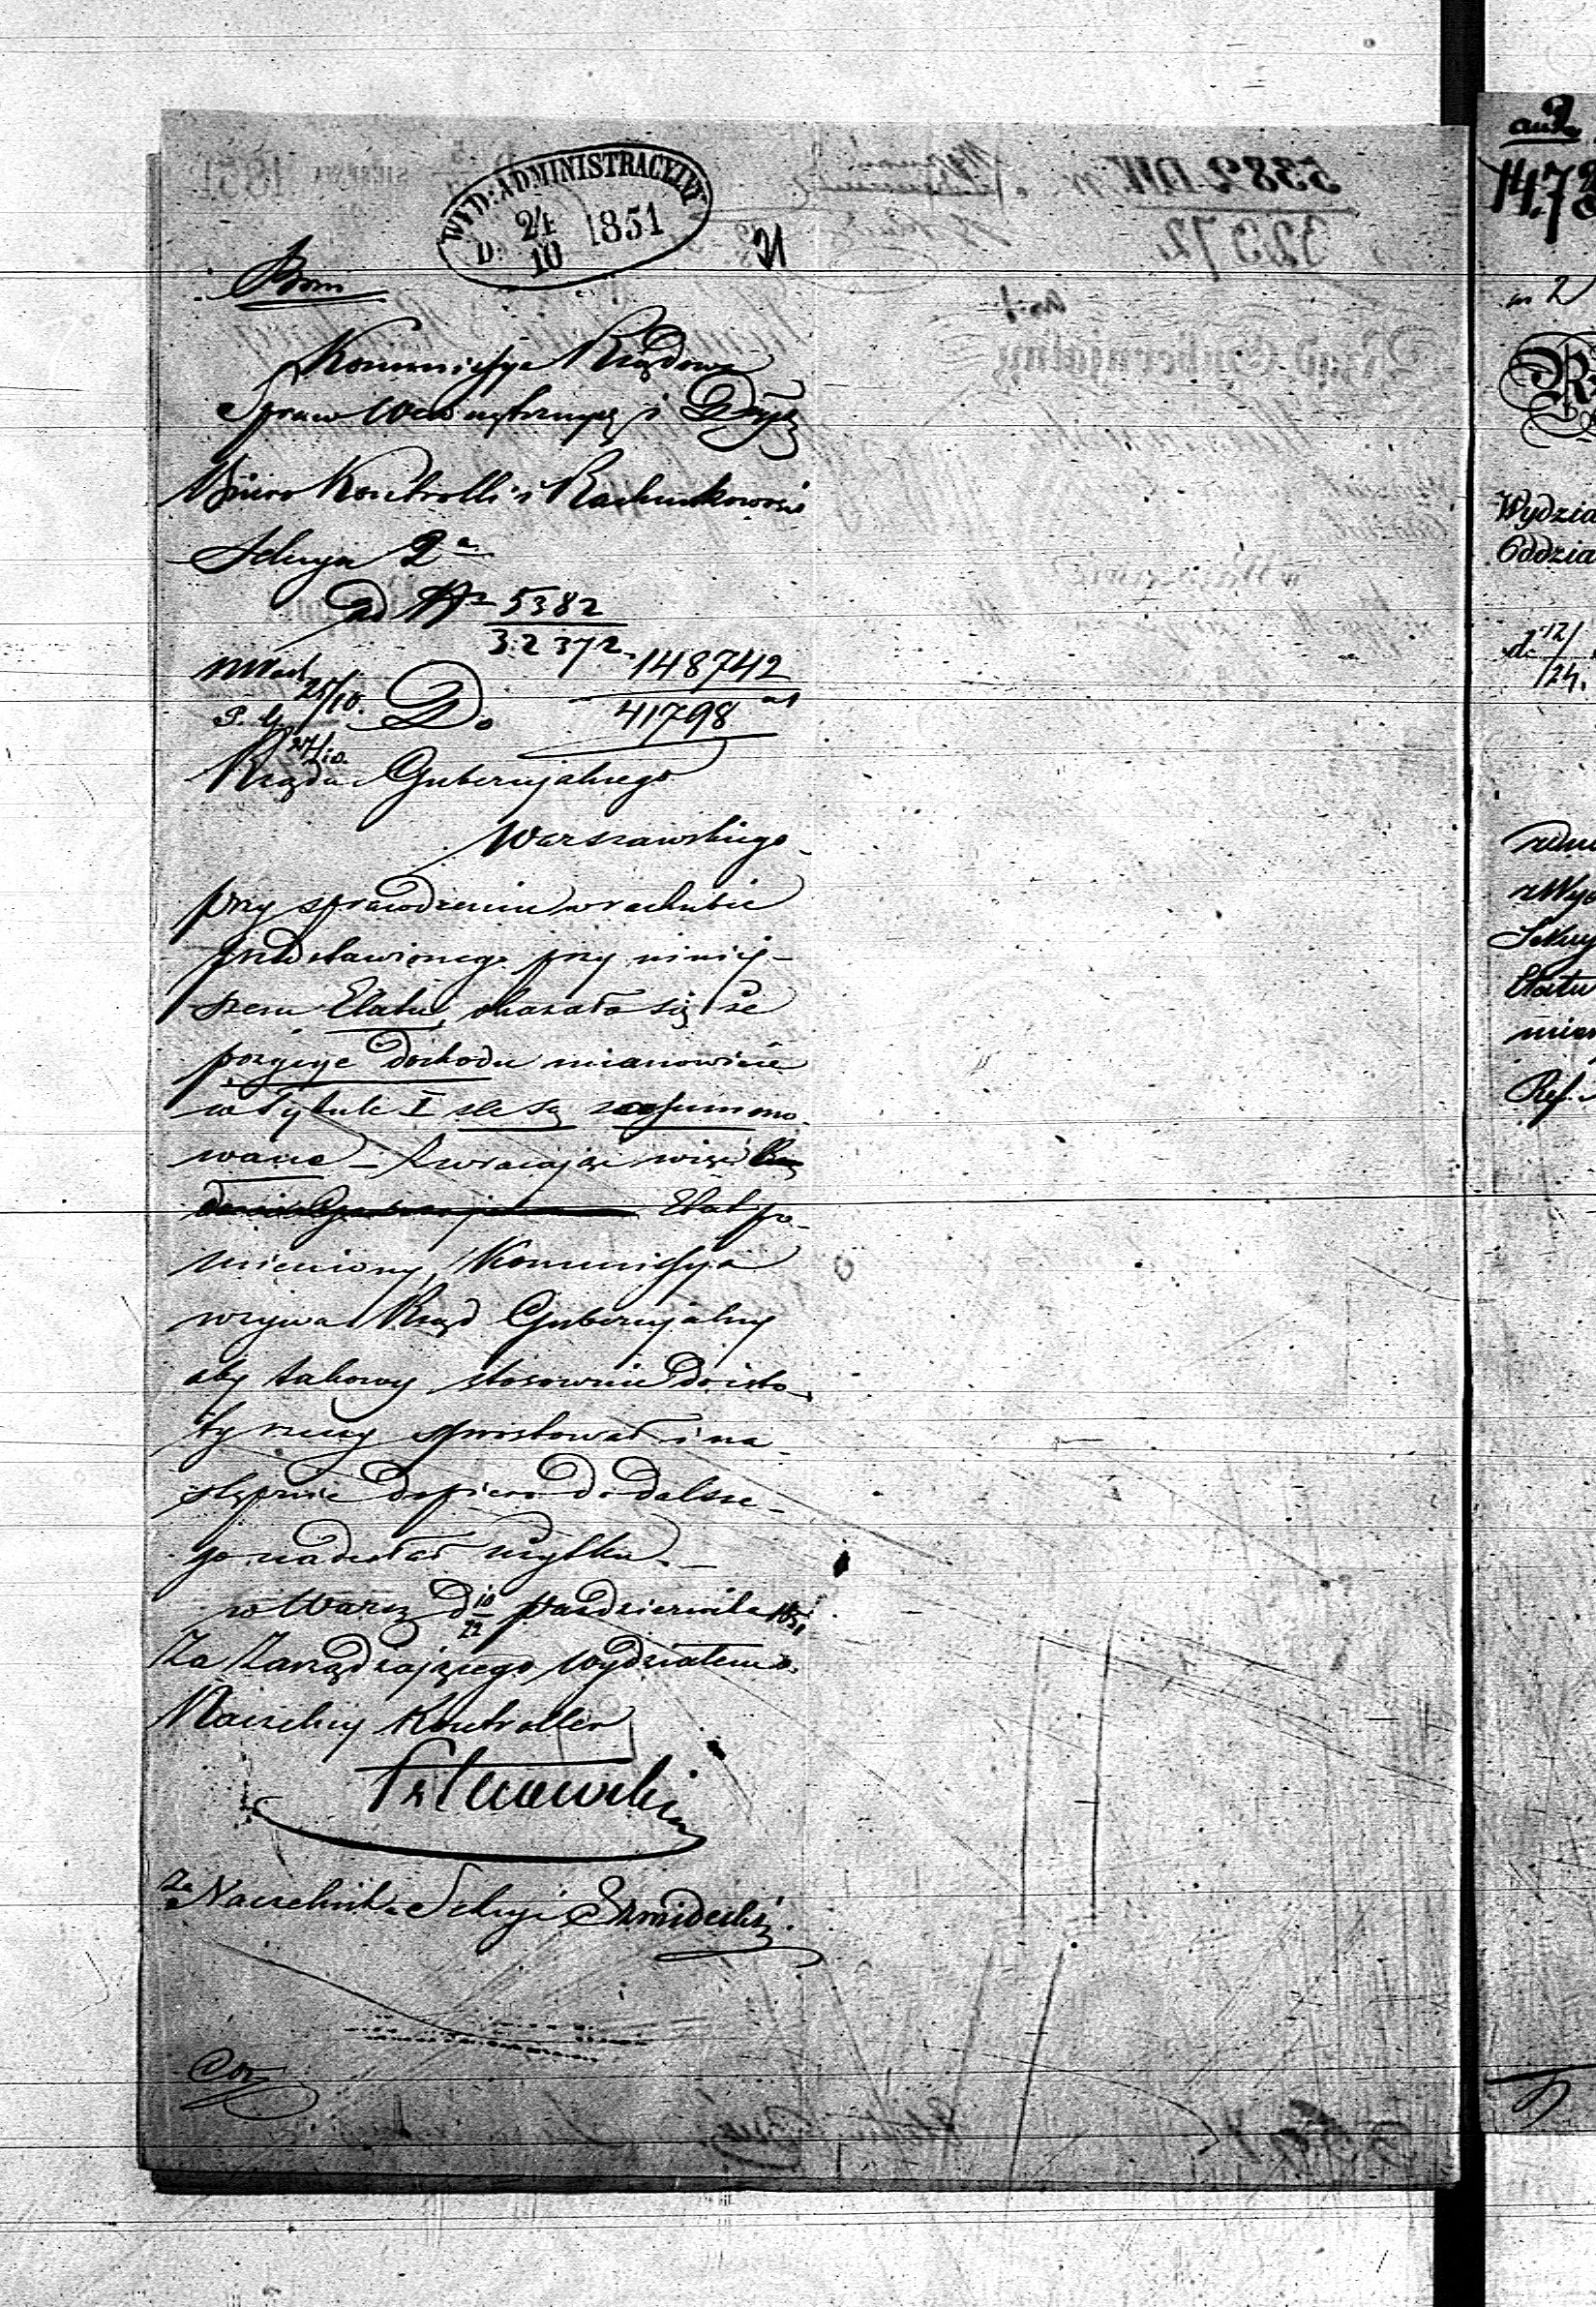 WYD: ADMINISTRACYJNY
D: 24/10 1851
21
Kommissya Rządowa
Spraw Wewnętrznych i Duch
Biuro Kontrolli i Rachunkowości
Sekcya 2a
ad Nr 5382/32372
148742/41798
25/10
Do
27/10
Rządu Gubernjalnego
Warszawskiego
przy sprawdzeniu w rachubie
przedstawionego przy niniej-
szem Etatu, okazało się że
pozycye dochodu mianowicie
w Tytule I źle są zesummo
wane – Zwracając więc
Etat po-
mieniony, Kommissya
wzywa Rząd Gubernjalny
aby takowy stosownie do isto-
ty rzeczy sprostował i na-
stępnie dopiero do dalsze-
go nadesłał użytku. –
w Warsz d 10/22 Października 1851
Za Zarządzającego Wydziałem
Naczelny Kontroller
Za Naczelnika Sekcyi Szmidecki